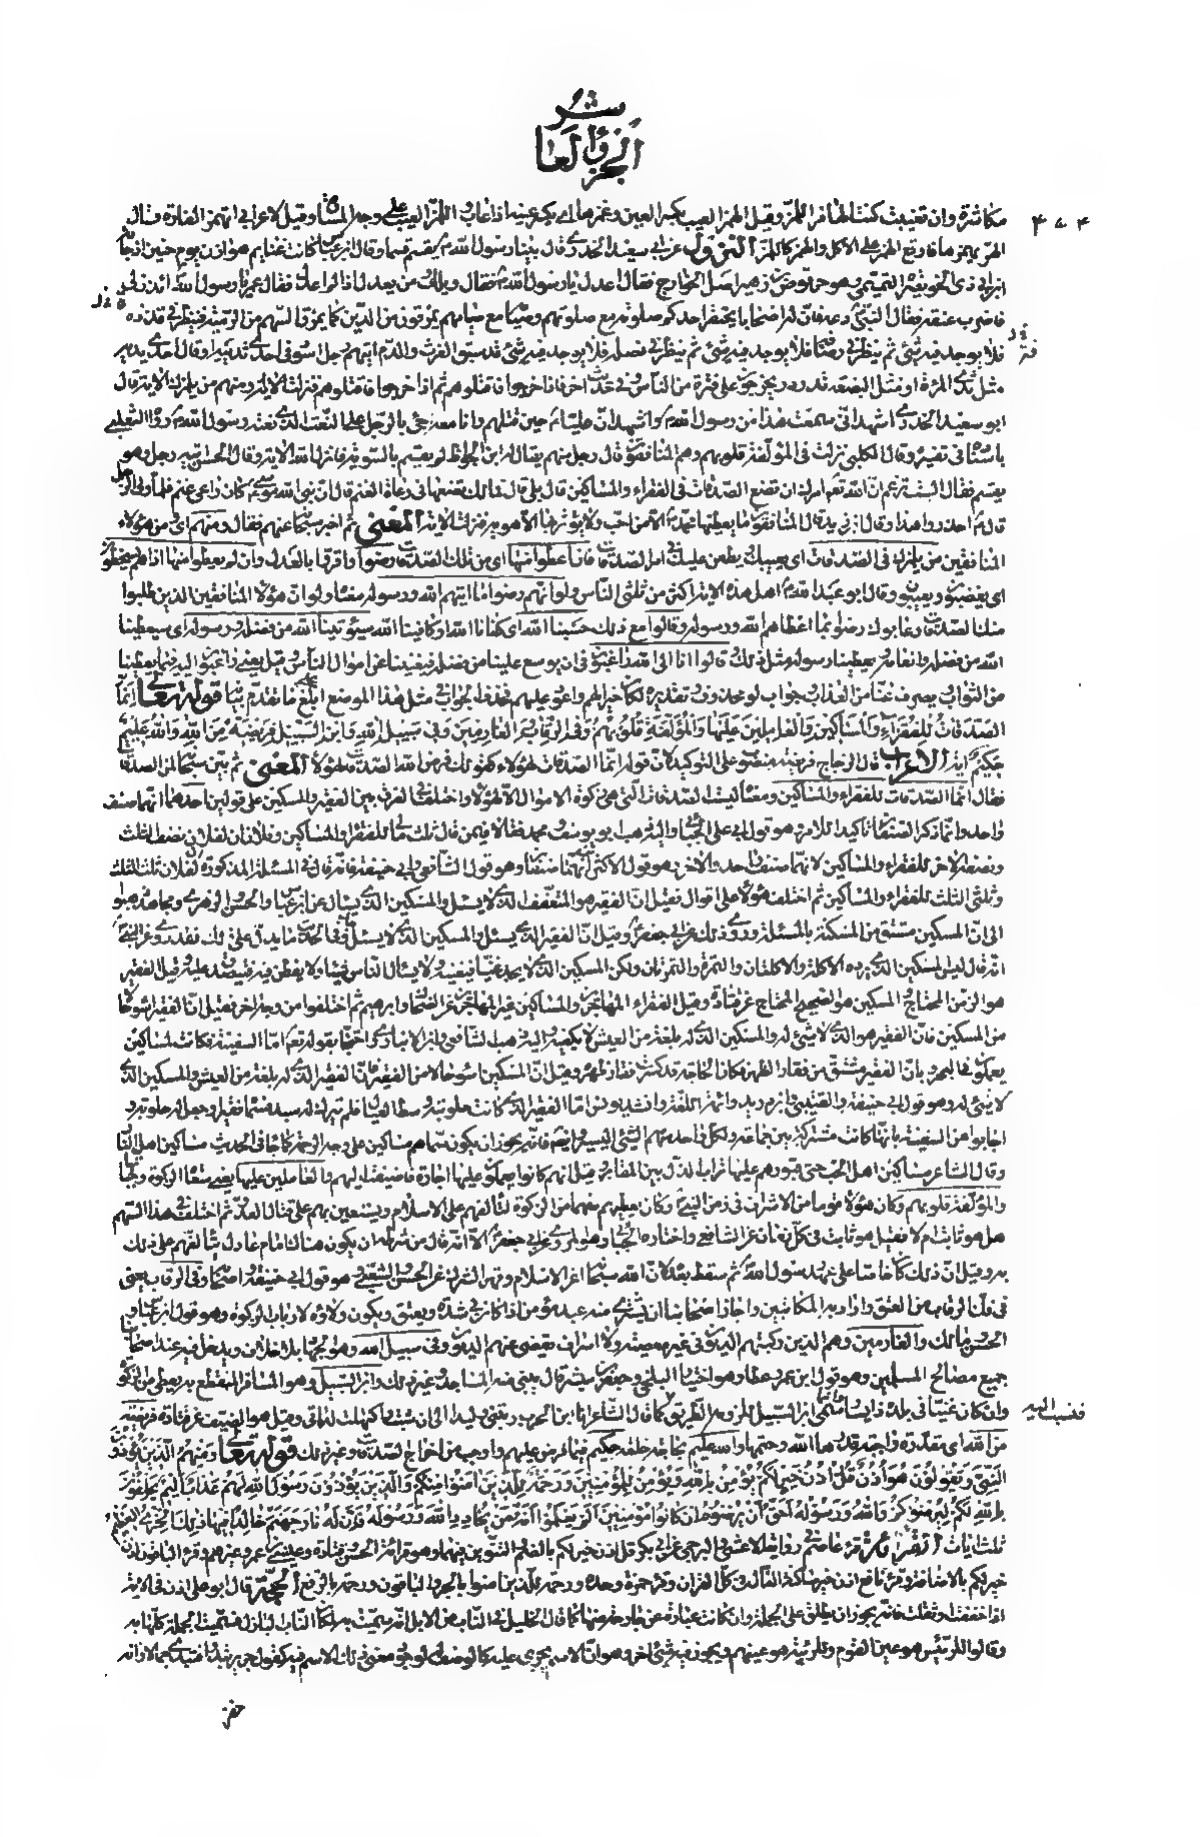 الجزؤ العاشر
مكاشرة وان تغيبت كنت الهامز اللمزة وقيل الهمز العيب بكسر العين وغمزها اى يكسر عينه اذا عاب واللمز العيب على وجه المسارة وقيل لاعرابى اتهمز الفارة فقال ۴۷۴
الهر يهمزها فاوقع الهمز على الاكل والهمز كاللمز النزول عن ابى سعيد الخدرى قال بينا رسول الله ص يقسم قسما وقال ابن عباس كانت غنايم هوازن يوم حنين اذ جاءه
ابن ابى ذى الخويصرة التميمى وهو حرقوص بن زهير اصل الخوارج فقال اعدل يا رسول الله ص فقال ويلك من يعدل اذا لم اعدل فقال عمر يا رسول الله ائذن لى
فاضرب عنقه فقال النبى دعه فان له اصحابا يحتقر احدكم صلوته مع صلوتهم وصيامه مع صيامهم يمرقون من الدين كما يمرق السهم من الرمية فينظر فى قذذه
فلا يوجد فيه شئ ثم ينظر فى رصافه فلا يوجد فيه شئ ثم ينظر فى نصله فلا يوجد فيه شئ قد سبق الفرث والدم ايتهم رجل اسود فى احدى ثدييه او قال احدى يديه
مثل ثدى المرءة او مثل البضعة تدردر يخرجون على فترة من الناس وفى حديث اخر فاذا خرجوا فاقتلوهم ثم اذا خرجوا فاقتلوهم فنزلت الاية ومنهم من يلمزك الاية قال
ابو سعيد الخدرى اشهد انى سمعت هذا من رسول الله ص واشهد ان عليا ع حين قتلهم وانا معه جئ بالرجل على النعت الذى نعته رسول الله ص رواه الثعلبى
باسناده فى تفسيره وقال الكلبى نزلت فى المؤلفة قلوبهم وهم المنافقون قال رجل منهم يقال له ابن الجواظ لم يقسم بالسوية فانزل الله الاية وقال الحسن اتيه رجل وهو
يقسم فقال الست تزعم ان الله تعالى امرك ان تضع الصدقات فى الفقراء والمساكين قال بلى قال فمالك تضعها فى رعاة الغنم قال ان نبى الله موسى كان راعى غنم فلما ولى الرجل
قال ع احذروا هذا وقال ابن زيد قال المنافقون ما يعطيها محمد الا من احب ولا يؤثر بها الا هويه فنزلت الاية المعنى ثم اخبر سبحانه عنهم فقال ومنهم اى من هؤلاء
المنافقين من يلمزك فى الصدقات اى يعيبك ويطعن عليك فى امر الصدقات فان اعطوا منها اى من تلك الصدقات رضوا واقروا بالعدل وان لم يعطوا منها اذا هم يسخطون
اى يغضبون ويعيبون وقال ابو عبد الله ع اهل هذه الاية اكثر من ثلثى الناس ولو انهم رضوا ما اتيهم الله ورسوله معناه ولو ان هؤلاء المنافقين الذين طلبوا
منك الصدقات وعابوك رضوا بما اعطاهم الله ورسوله وقالوا مع ذلك حسبنا الله اى كفانا الله او كافينا الله سيؤتينا الله من فضله ورسوله اى سيعطينا
الله من فضله وانعامه ويعطينا رسوله مثل ذلك وقالوا انا الى الله راغبون فى ان يوسع علينا من فضله فيغنينا عن اموال الناس وقيل يعنى راغبون اليه فيما يعطينا
من الثواب ويصرف عنا من العذاب وجواب لو محذوف تقديره لكان خيرا لهم واعود عليهم فحذف الجواب فى مثل هذا الموضع ابلغ على ما تقدم بيانه قوله تعالى انما
الصدقات للفقراء والمساكين والعاملين عليها والمؤلفة قلوبهم وفى الرقاب والغارمين وفى سبيل الله وابن السبيل فريضة من الله والله عليم
حكيم اية الاعراب قال الزجاج فريضة منصوب على التوكيد لان قوله انما الصدقات لهؤلاء كقولك فرض الله الصدقات لهؤلاء المعنى ثم بين سبحانه لمن الصدقات
فقال انما الصدقات للفقراء والمساكين ومعناه ليست الصدقات التى هى زكوة الاموال الا لهؤلاء واختلف فى الفرق بين الفقير والمسكين على قولين احدهما انهما صنف
واحد وانما ذكر الصنفان تاكيدا للامر وهو قول ابى على الجبائى واليه ذهب ابو يوسف ومحمد فقالا فيمن قال ثلث مالى للفقراء والمساكين وفلان ان لفلان نصف الثلث
ونصفه الاخر للفقراء والمساكين لانهما صنف واحد والاخر وهو قول الاكثرين انهما صنفان وهو قول الشافعى وابى حنيفة فانه قال فى المسئلة المذكورة ان لفلان ثلث الثلث
وثلثى الثلث للفقراء والمساكين ثم اختلف هؤلاء على اقوال فقيل ان الفقير هو المتعفف الذى لا يسئل والمسكين الذى يسال عن ابن عباس والحسن والزهرى ومجاهد ذهبوا
الى ان المسكين مشتق من المسكنة بالمسئلة وروى ذلك عن ابى جعفر ع وقيل ان الفقير الذى يسئل والمسكين الذى لا يسئل وقد جاء فى الحديث ما يدل على ذلك فقد روى عن النبى ص
انه قال ليس المسكين الذى يرده الاكلة والاكلتان والتمرة والتمرتان ولكن المسكين الذى لا يجد غنيا فيغنيه ولا يسال الناس شيئا ولا يفطن فيه فيتصدق عليه وقيل الفقير
هو الزمن المحتاج والمسكين هو الصحيح المحتاج عن قتادة وقيل الفقراء المهاجرون والمساكين غير المهاجرين عن الضحاك وابرهيم ثم اختلفوا من وجه اخر فقيل ان الفقير اسوء حالا
من المسكين فان الفقير هو الذى لا شئ له والمسكين الذى له بلغة من العيش لا يكفيه واليه ذهب الشافعى وابن الانبارى واحتجا بقوله تعالى اما السفينة فكانت لمساكين
يعملون فى البحر وبان الفقير مشتق من فقار الظهر فكان الحاجة قد كسرت فقار ظهره وقيل ان المسكين اسوء حالا من الفقير فان الفقير الذى له بلغة من العيش والمسكين الذى
لا شئ له وهو قول ابى حنيفة والقتيبى وابن دريد وائمة اللغة وانشد يونس اما الفقير الذى كانت حلوبته وفق العيال فلم يترك له سبد فسماه فقيرا وجعل له حلوبة و
اجابوا عن السفينة بانها كانت مشتركة بين جماعة ولكل واحد منهم الشئ اليسير وايضا فانه يجوز ان يكون سماهم مساكين على وجه الرحمة كما جاء فى الحديث مساكين اهل النار
وقال الشاعر مساكين اهل الحب حتى قبورهم عليها تراب الذل بين المقابر وقيل انهم كانوا يعملون عليها اجارة فاضيفت اليهم والعاملين عليها يعنى سعاة الزكوة وجباتها
والمؤلفة قلوبهم وكان هؤلاء قوما من الاشراف فى زمن النبى ص وكان يعطيهم سهما من الزكوة ليتالفهم على الاسلام ويستعين بهم على قتال العدو ثم اختلف فى هذا السهم
هل هو ثابت ام لا فقيل هو ثابت فى كل زمان عن الشافعى واختاره الجبائى وهو المروى عن ابى جعفر ع الا انه قال من شرطه ان يكون هناك امام عادل يتالفهم على ذلك
به وقيل ان ذلك كان خاصا على عهد رسول الله ص ثم سقط بعده لان الله سبحانه اعز الاسلام وقهر الشرك عن الحسن والشعبى وهو قول ابى حنيفة واصحابه وفى الرقاب يعنى
فى فك الرقاب من العتق واراد به المكاتبين واجاز اصحابنا ان يشترى منه عبد مؤمن اذا كان فى شدة ويعتق ويكون ولاؤه لارباب الزكوة وهو قول ابن عباس و
الحسن ومالك والغارمين وهم الذين ركبتهم الديون فى غير معصية ولا اسراف يقضى عنهم الديون وفى سبيل الله وهو الجهاد بلا خلاف ويدخل فيه عند اصحابنا
جميع مصالح المسلمين وهو قول ابن عمر وعطا وهو اختيار البلخى وجعفر بن مبشر قال يبنى منه المساجد وغير ذلك وابن السبيل وهو المسافر المنقطع به يعطى من الزكوة
وان كان غنيا فى بلده ذا يسار وانما سمى ابن السبيل للزومه الطريق كما قال الشاعر انا ابن الحرب ربتنى وليدا الى ان شبت واكتهلت لداتى وقيل هو الضيف عن قتادة فريضة
من الله اى مقدرة واجبة قدرها الله وحتمها والله عليم بحاجة خلقه حكيم فيما فرض عليهم واوجب من اخراج الصدقات وغير ذلك قوله تعالى ومنهم الذين يؤذون
النبى ويقولون هو اذن قل اذن خير لكم يؤمن بالله ويؤمن للمؤمنين ورحمة للذين امنوا منكم والذين يؤذون رسول الله لهم عذاب اليم يحلفون
بالله لكم ليرضوكم والله ورسوله احق ان يرضوه ان كانوا مؤمنين الم يعلموا انه من يحادد الله ورسوله فان له نار جهنم خالدا فيها ذلك الخزى العظيم
ثلث ايات القراءة قرء عاصم فى رواية الاعشى والبرجمى عن ابى بكر قل اذن خير لكم بالضم والتنوين فيهما وهو قراءة الحسن وقتادة وعيسى بن عمر وغيرهم وقرء الباقون اذن
خير لكم بالاضافة وقرء نافع اذن خير ساكنة الذال فى كل القران وقرء حمزة وحده ورحمة للذين امنوا بالجر والباقون ورحمة بالرفع الحجة قال ابو على اذن فى الاية
اذا خففت وثقلت فانه يجوز ان يطلق على الجملة وان كانت عبارة عن جارحة منها كما قال الخليل فى الناب من الابل انه سميت به لمكان الناب البازل فسميت الجملة كلها به
وقالوا للرئيس هو عين القوم وللربيئة هو عينهم ويجوز فيه شئ اخر وهو ان الاسم يجرى عليه كالوصف له لوجود معنى ذلك الاسم فيه كقول جرير تبدو فتبدى جمالا زانه
خفر